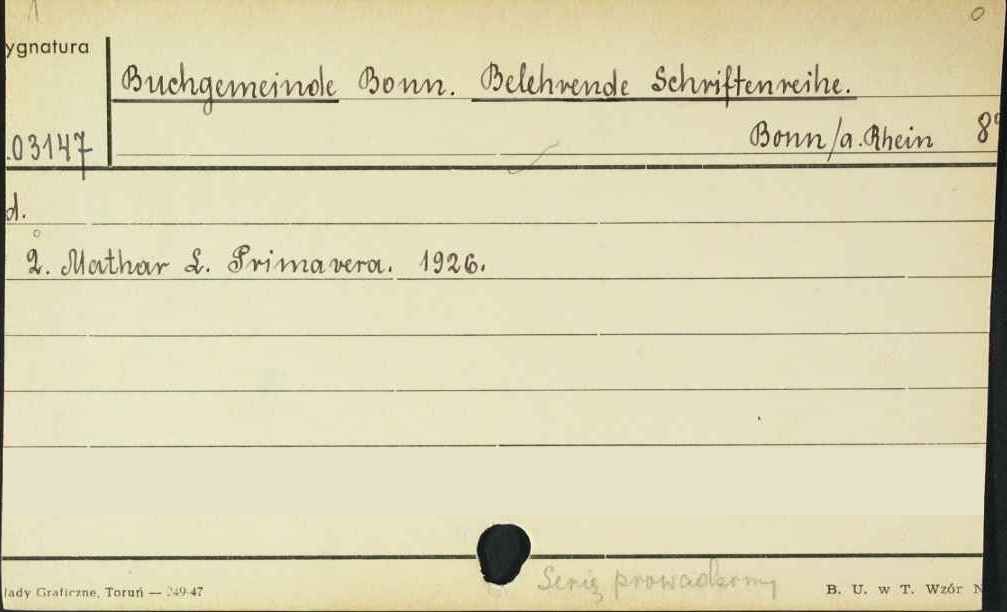 ygnatura
Buchgemeinde Bonn. Belehrende Schriftenreihe.
.03147
Bonn/a.Rhein 8°
d.
2. Mathar L. Primavera. 1926.
Serię prowadzimy
łady Graficzne, Toruń — 249-47
B. U. w T. Wzór N